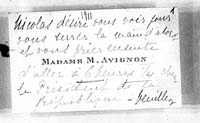 Nicolas désire vous voir pour
vous serrer la main d'abord
et vous prier ensuite
MADAME M. AVIGNON
d'aller à 6 heures ½ chez
le Président de la
République - Veuillez